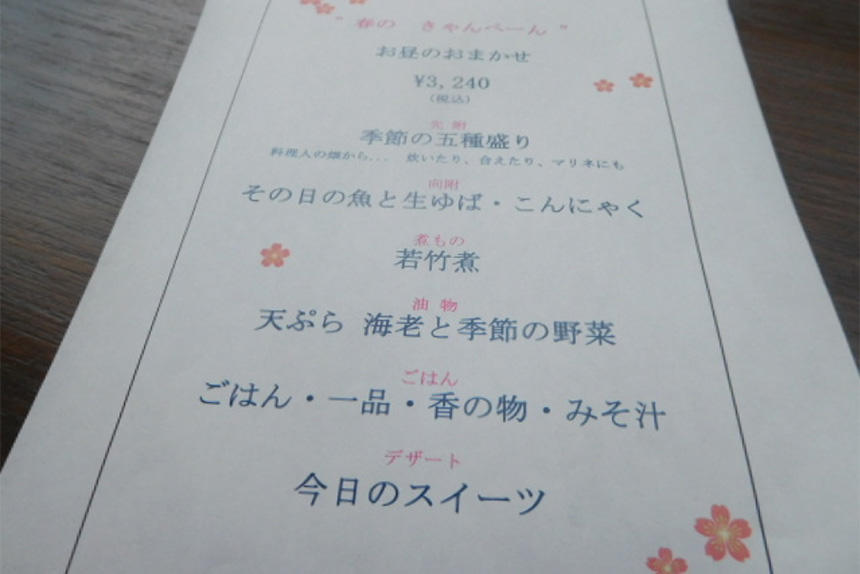 "春の きゃんぺーん"
お昼のおまかせ
¥3,240
(税込)
先附
季節の五種盛り
料理人の畑から... 炊いたり、合えたり、マリネにも
向附
その日の魚と生ゆば・こんにゃく
煮もの
若竹煮
油物
天ぷら 海老と季節の野菜
ごはん
ごはん・一品・香の物・みそ汁
デザート
今日のスイーツ